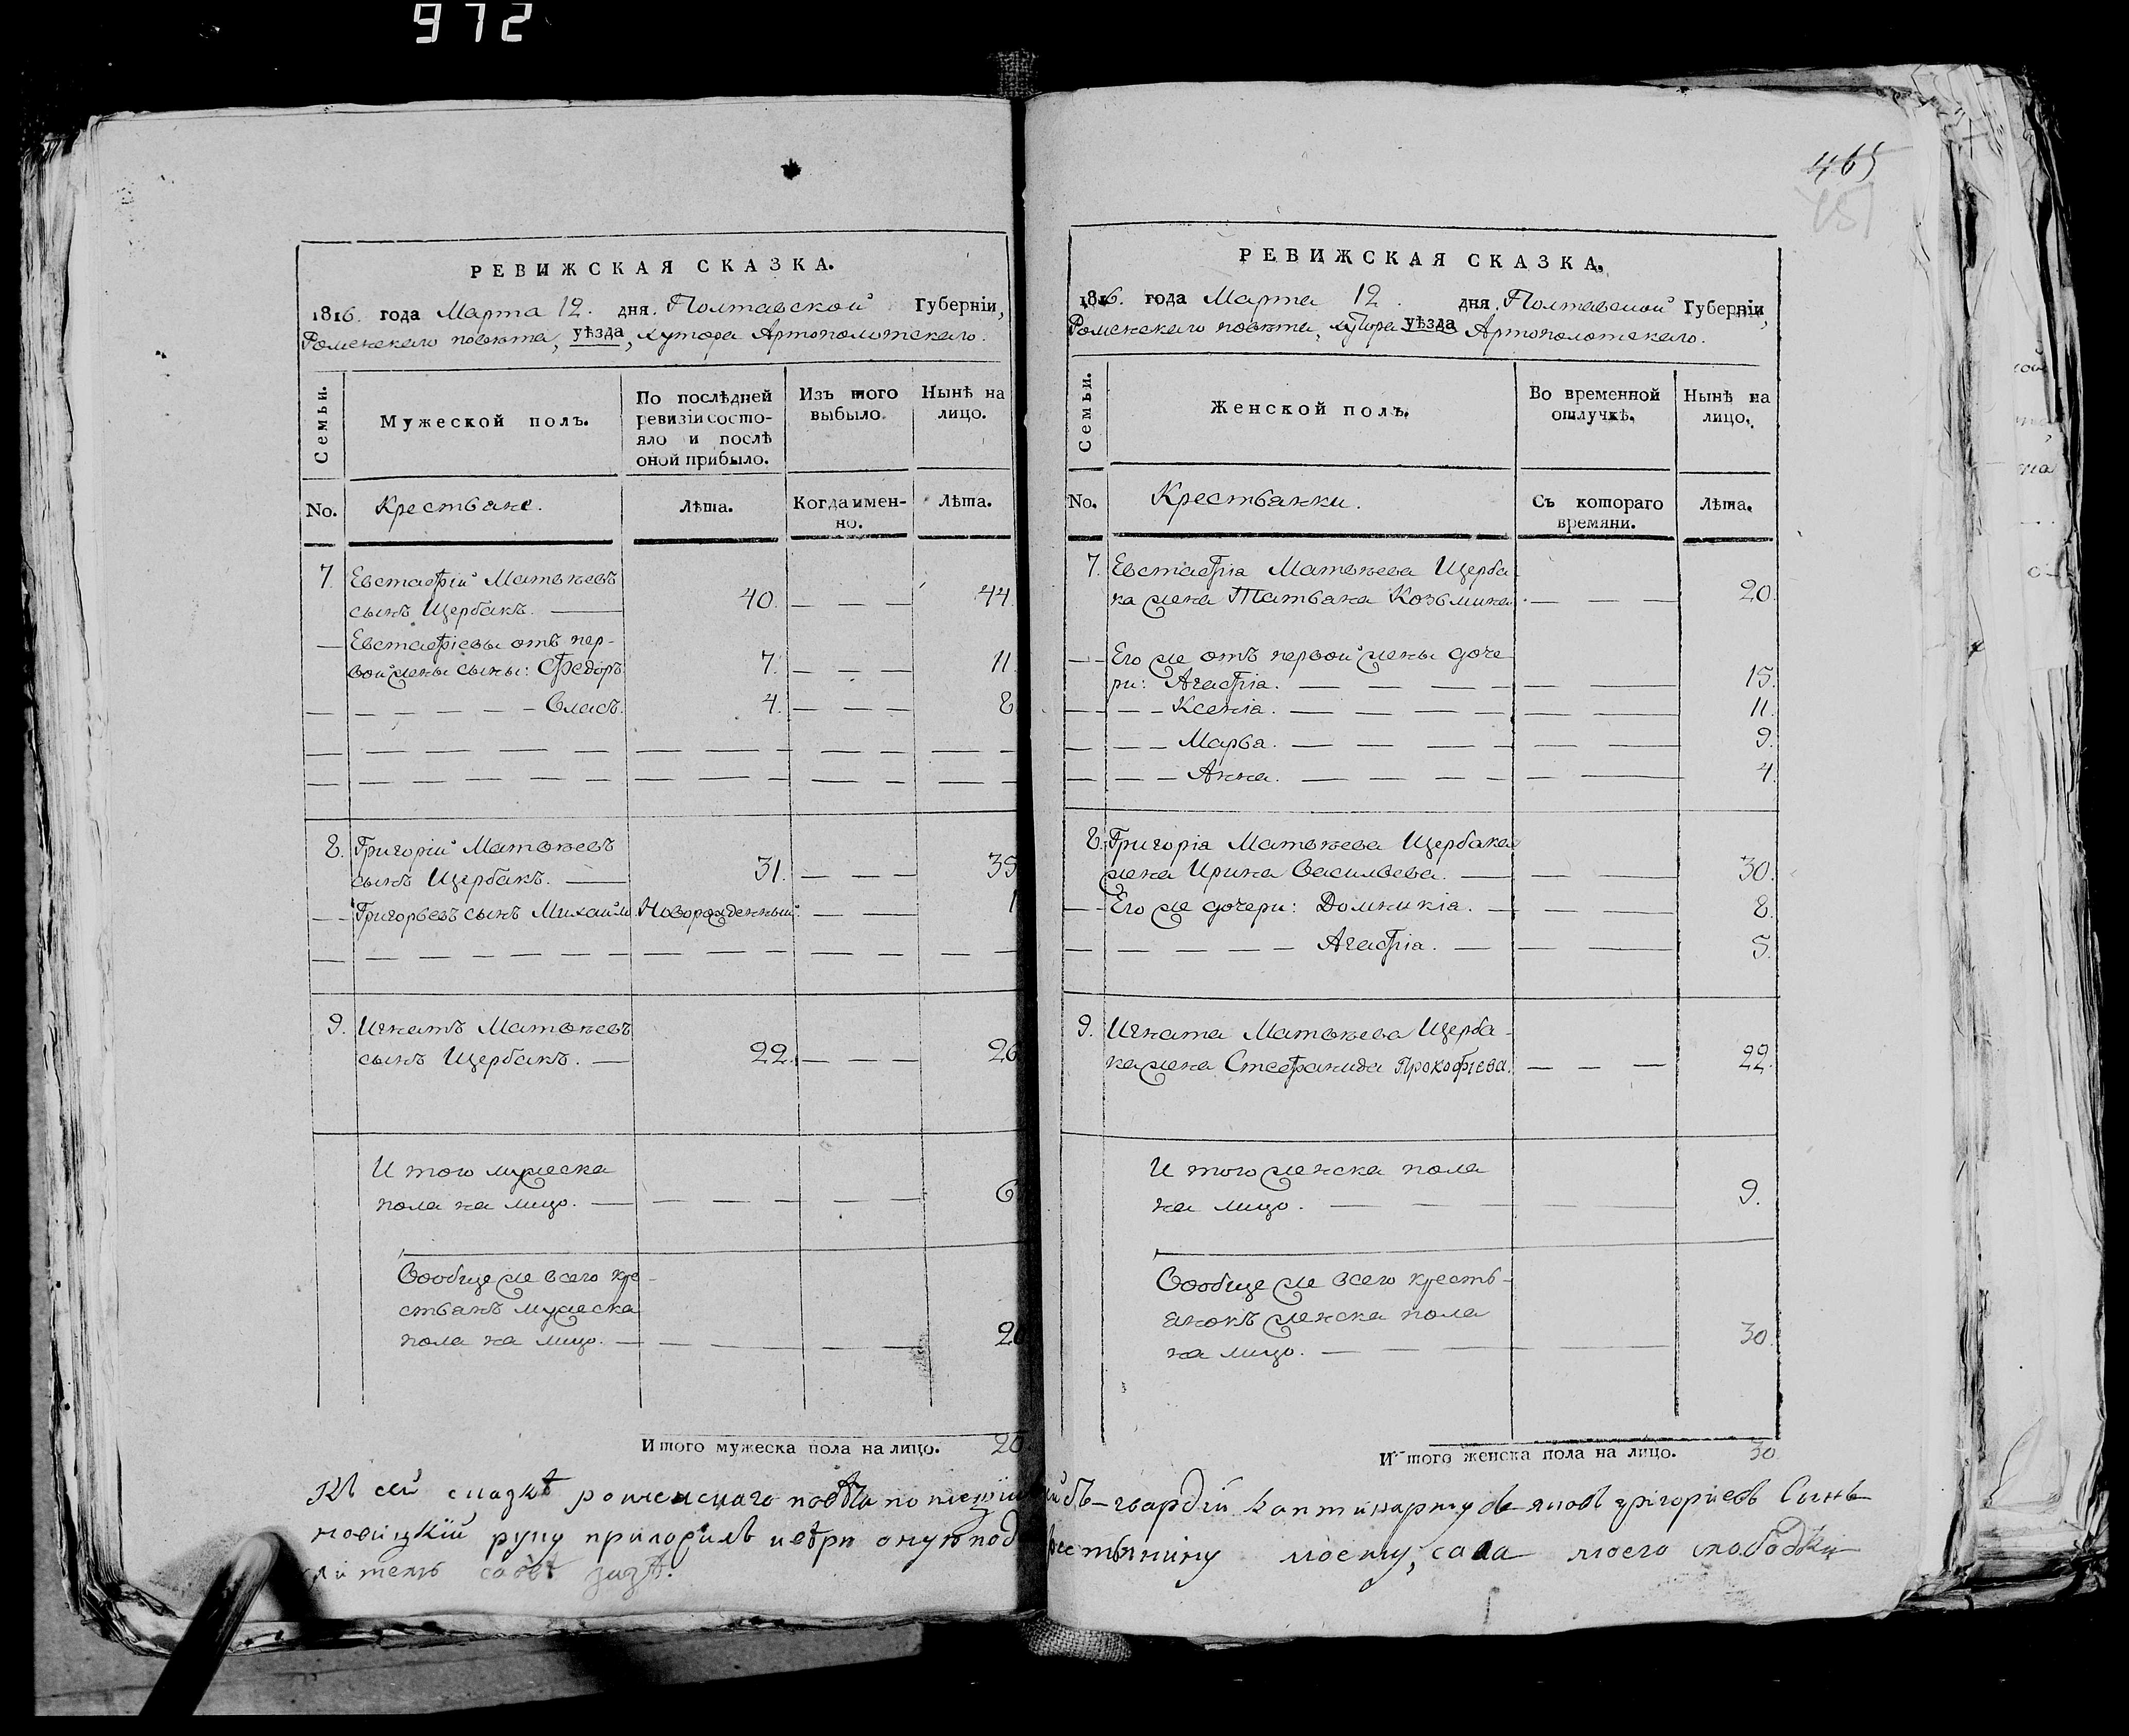 972
465
РЕВИЖСКАЯ СКАЗКА.
1816. года Марта 12. дня. Полтавской Губернїи,
Роменского повѣта, уѣзда, хутора Артополотского.
Семьи.
Мужеской полъ.
По послѣдней ревизїи состо-
яло и послѣ
оной прибыло.
Изъ того
выбыло.
Нынѣ на
лицо.
No.
Крестьяне.
Лѣта.
Когда имен-
но.
Лѣта.
7. Евстафій Матвѣевъ
сынъ Щербакъ. 40. 44.
Евстафіевы отъ пер-
вой жены сыны: Федоръ. 7. 11.
Власъ. 4. 8
8. Григорій Матвѣевъ
сынъ Щербакъ. 31. 35
Григорьевъ сынъ Михайло. Новорожденный. 1
9. Игнатъ Матвѣевъ
сынъ Щербакъ. 22. 26
И того мужеска
пола на лицо. 6
Вообще же всего кре-
стьянъ мужеска
пола на лицо.
Итого мужеска пола на лицо. 20
РЕВИЖСКАЯ СКАЗКА,
1816. года Марта 12. дня. Полтавской Губернїи,
Роменского повѣта, хутора уѣзда Артополотского.
Семьи.
Женской полъ.
Во временной
отлучкѣ.
Нынѣ на
лицо.
No.
Крестьянки.
Съ котораго
времяни.
Лѣта.
7. Евстафіа Матвѣева Щерба
ка жена Татьяна Козьмина. 20.
Его же отъ первой жены доче
ри: Агафіа. 15.
Ксеніа. 11.
Марва. 9.
Анна. 4.
8. Григоріа Матвѣева Щербака
жена Ирина Васильева. 30.
Его же дочери: Домникіа. 8.
Агафіа. 5.
9. Игната Матвѣева Щерба-
ка жена Стефанида Прокофіева. 22.
И того женска пола
на лицо. 9.
Вообще же всего кресть-
янокъ женска пола
на лицо. 30.
Итого женска пола на лицо. 30.
Къ сей сказкѣ роменского повѣта гвардіи Сынъ
руку приложилъ моему, села моего